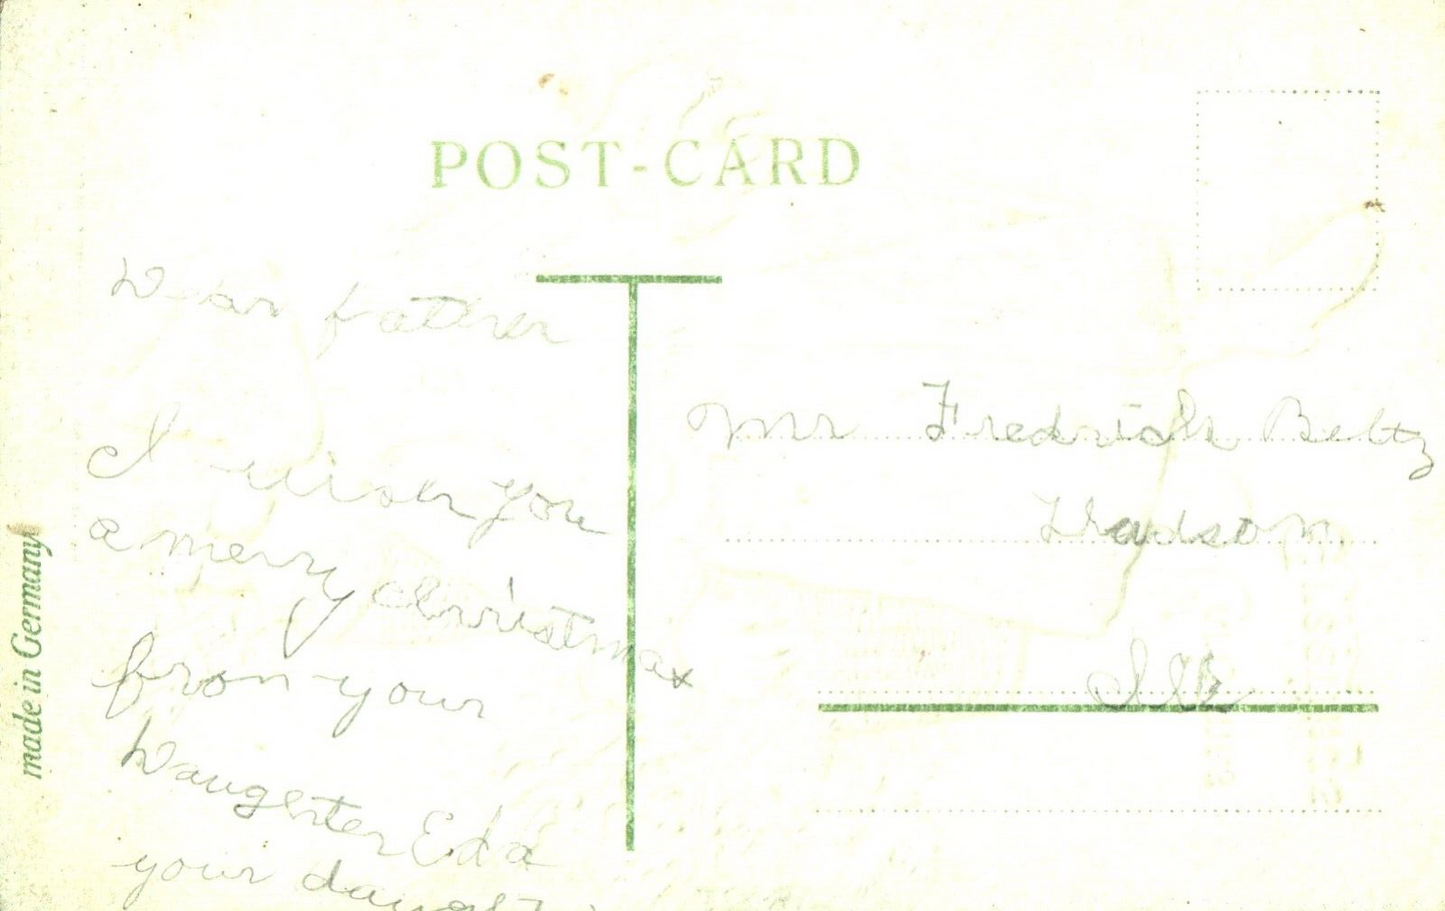 POST-CARD
Dear father
I wish you
a merry christmas
from your
Daughter Eda
your
Mr Fredrick Beltz
Hudson
Ills
made in Germany